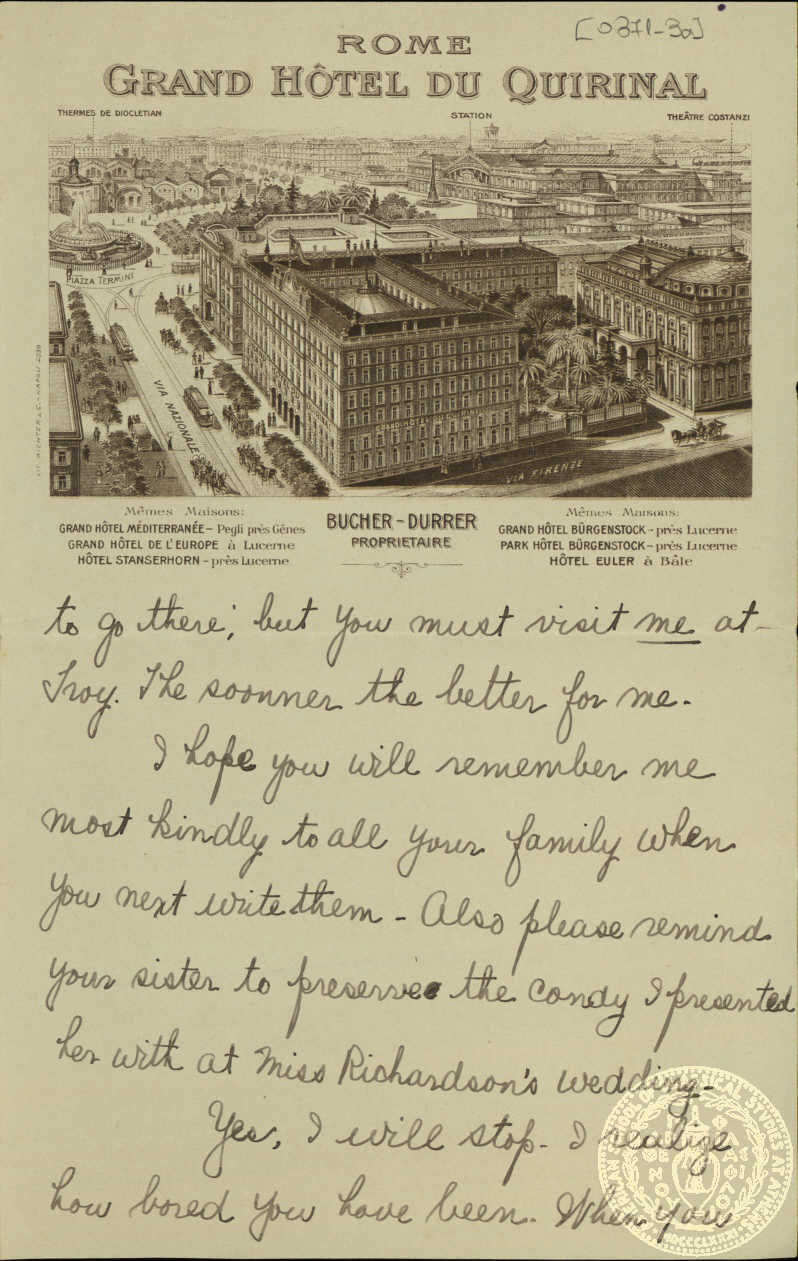 [0371-3a]
ROME
GRAND HÔTEL DU QUIRINAL
THERMES DE DIOCLETIAN
STATION
THEÂTRE COSTANZI
PIAZZA TERMINI
VIA NAZIONALE
VIA FIRENZE
LIT. RICHTER & C. - NAPOLI
Mêmes Maisons:
GRAND HÔTEL MÉDITERRANÉE - Pegli près Gênes
GRAND HÔTEL DE L'EUROPE à Lucerne
HÔTEL STANSERHORN - près Lucerne
BUCHER - DURRER
PROPRIETAIRE
Mêmes Maisons:
GRAND HÔTEL BÜRGENSTOCK - près Lucerne
PARK HÔTEL BÜRGENSTOCK - près Lucerne
HÔTEL EULER à Bâle
to go there; but you must visit me at
Troy. The soonner the better for me.
I hope you will remember me
most kindly to all your family when
you next write them - Also please remind
your sister to preserve the candy I presented
her with at Miss Richardson's wedding -
Yes, I will stop - I realize
how bored you have been. When you
AMERICAN SCHOOL OF CLASSICAL STUDIES AT ATHENS
MDCCCLXXXI